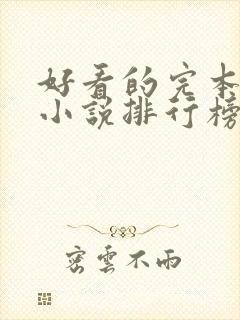 好看的完本
小說排行榜
密雲不雨